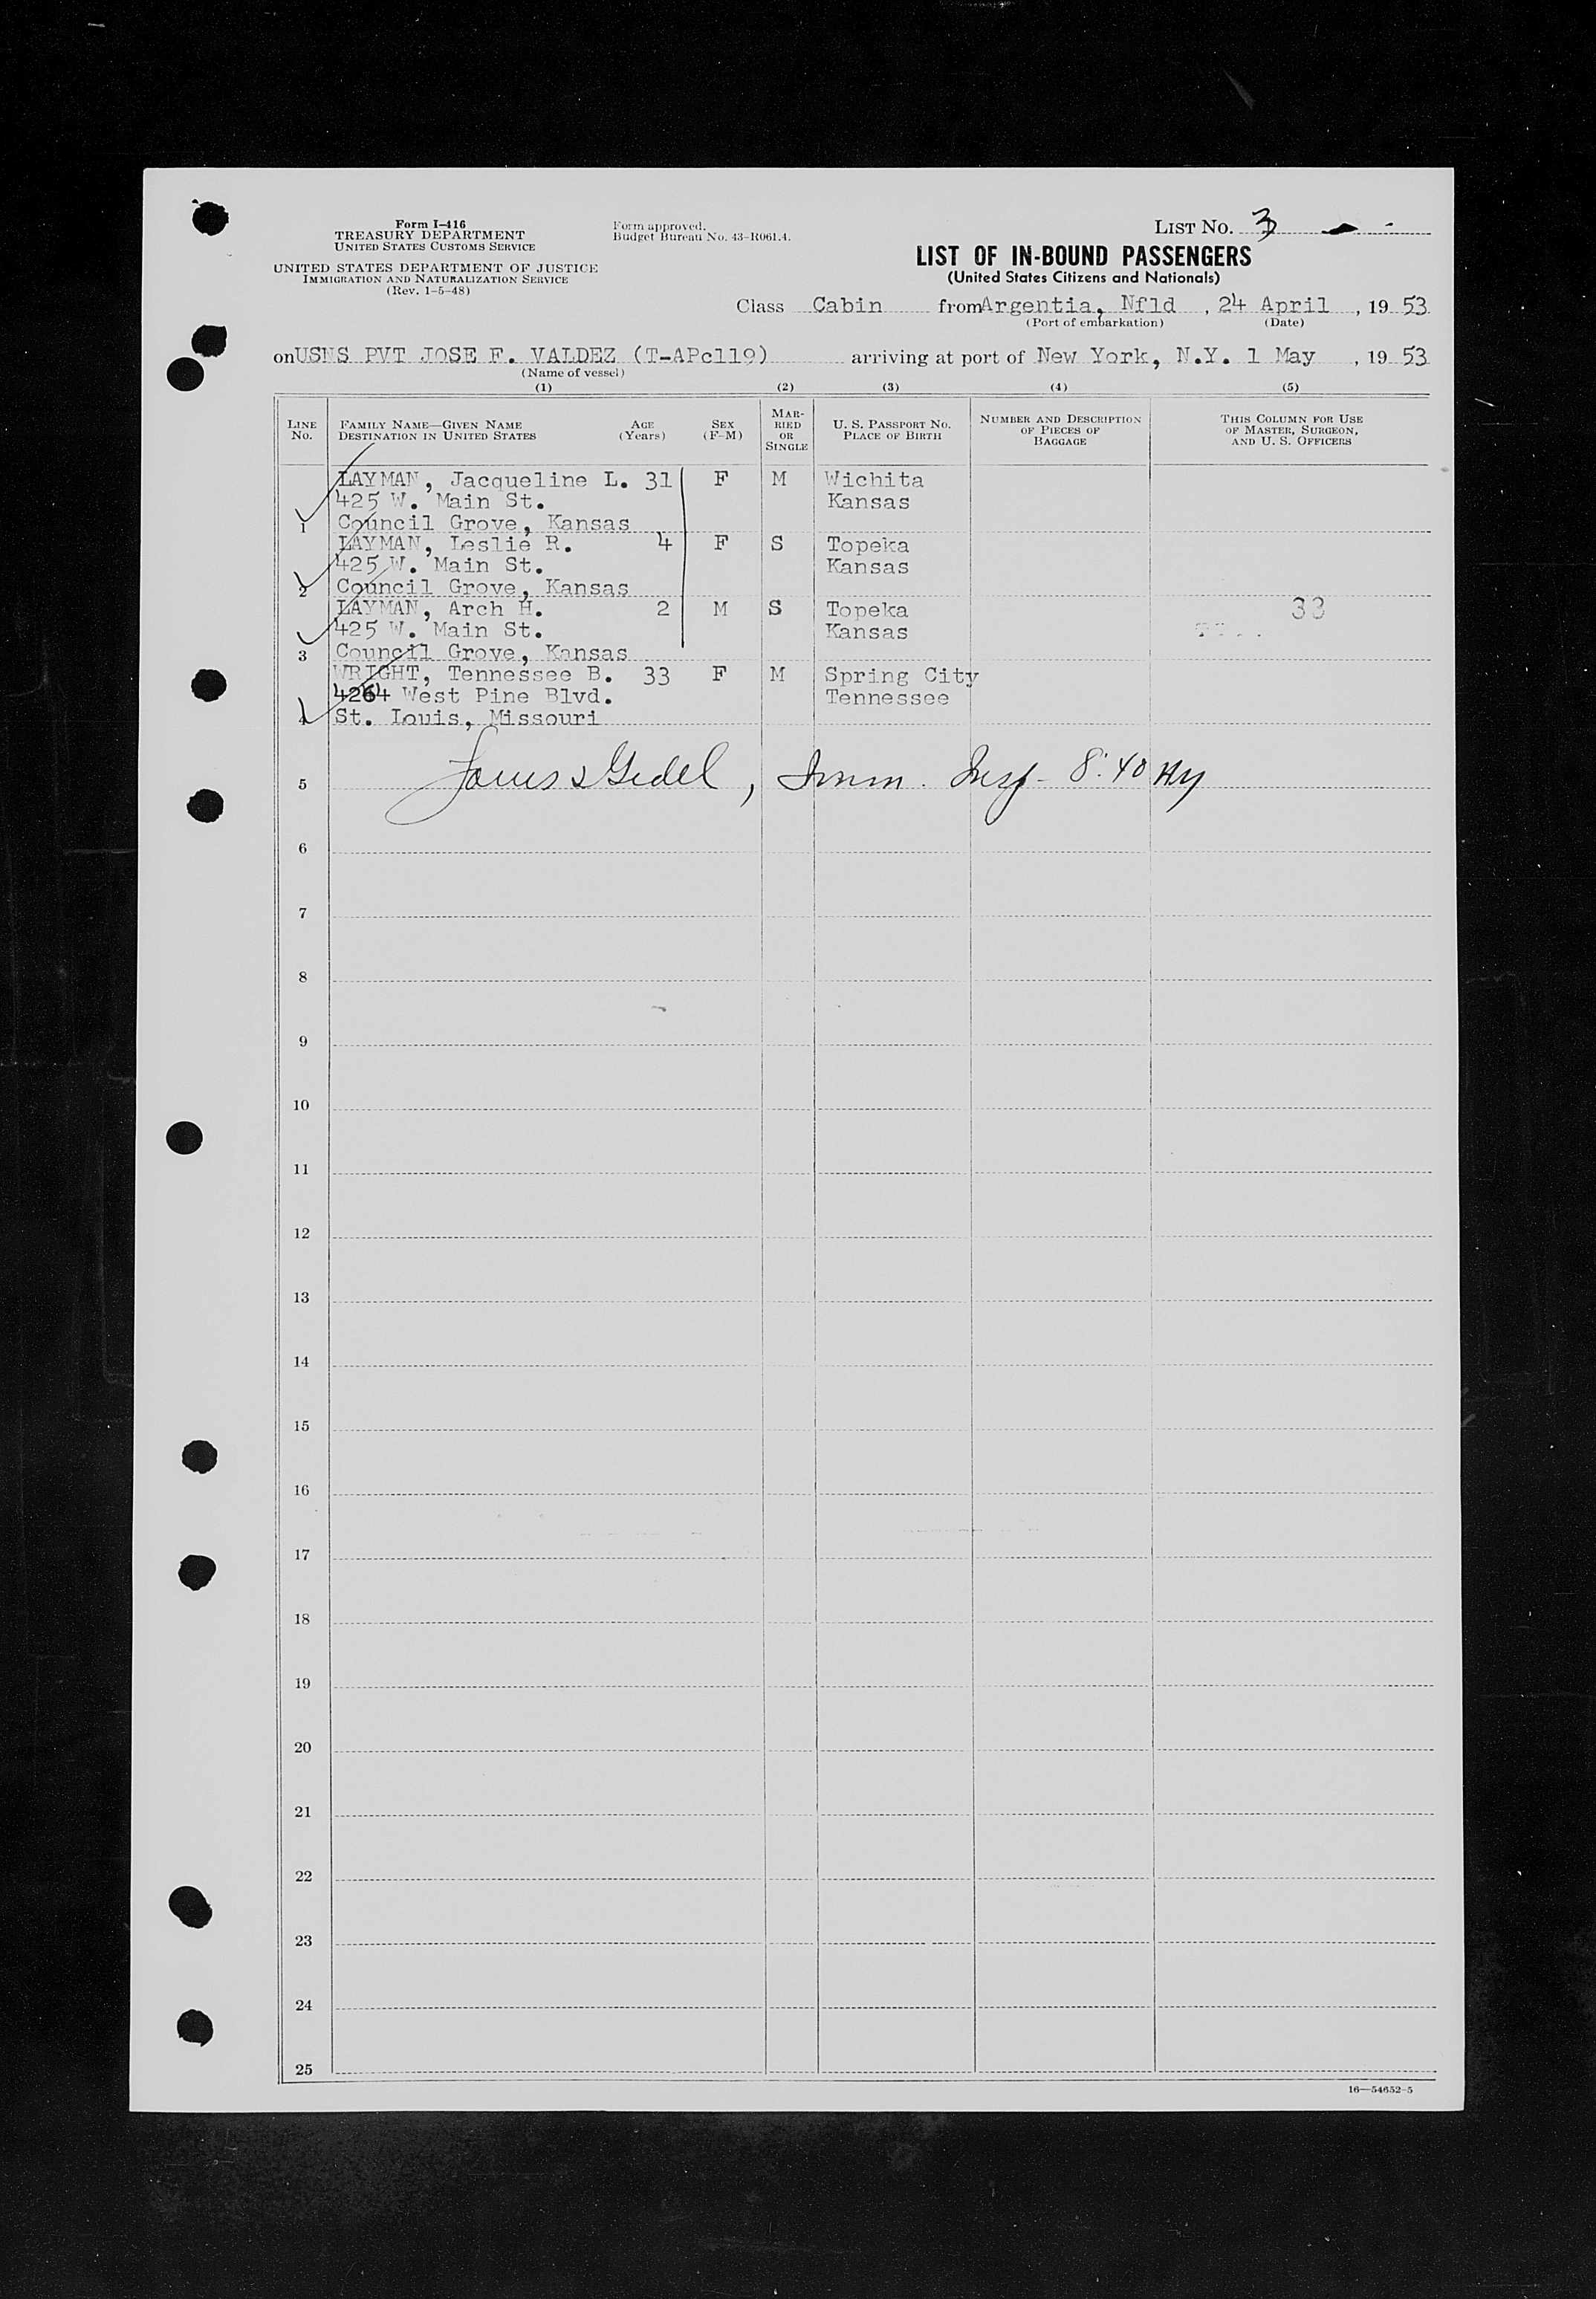 Form I-416
TREASURY DEPARTMENT
UNITED STATES CUSTOMS SERVICE
UNITED STATES DEPARTMENT OF JUSTICE
IMMIGRATION AND NATURALIZATION SERVICE
(Rev. 1-5-48)
Form approved.
Budget Bureau No. 43-R061.4.
LIST No. 3
LIST OF IN-BOUND PASSENGERS
(United States Citizens and Nationals)
Class Cabin from Argentia, Nfld , 24 April , 19 53
(Port of embarkation) (Date)
on USNS PVT JOSE F. VALDEZ (T-APc119) arriving at port of New York, N.Y. 1 May , 19 53
(Name of vessel)
(1) (2) (3) (4) (5)
LINE No. FAMILY NAME—GIVEN NAME DESTINATION IN UNITED STATES AGE (Years) SEX (F-M) MARRIED OR SINGLE U. S. PASSPORT NO. PLACE OF BIRTH NUMBER AND DESCRIPTION OF PIECES OF BAGGAGE THIS COLUMN FOR USE OF MASTER, SURGEON, AND U. S. OFFICERS
LAYMAN, Jacqueline L. 31 F M Wichita
425 W. Main St. Kansas
1 Council Grove, Kansas
LAYMAN, Leslie R. 4 F S Topeka
425 W. Main St. Kansas
2 Council Grove, Kansas
LAYMAN, Arch H. 2 M S Topeka 33
425 W. Main St. Kansas
3 Council Grove, Kansas
WRIGHT, Tennessee B. 33 F M Spring City
4264 West Pine Blvd. Tennessee
4 St. Louis, Missouri
5 , Imm. Insp - 8:40
6
7
8
9
10
11
12
13
14
15
16
17
18
19
20
21
22
23
24
25
16—54652-5